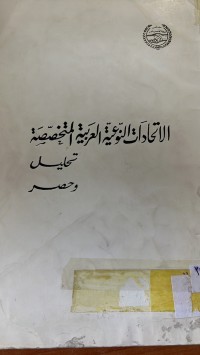 الاتحادات النوعية العربية المتخصصة
تحليل
وحصر